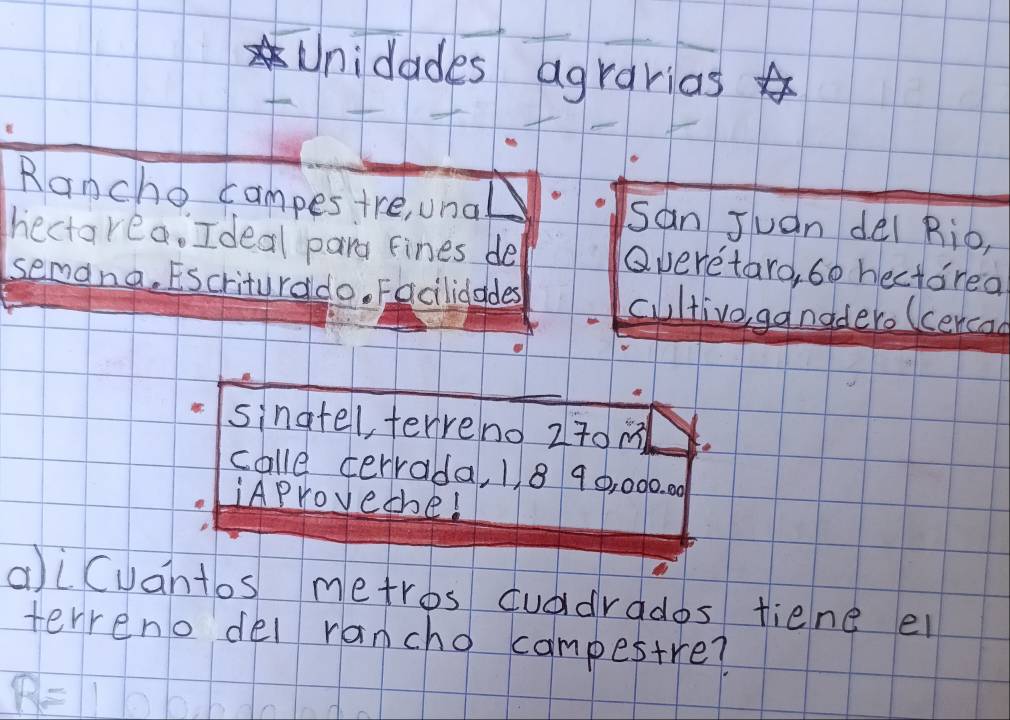 Unidades agrarias
Rancho campestre, una
hectarea. Ideal para fines de
semana. Escriturado. Facilidades
San Juan del Rio,
Querétaro, 60 hectárea
cultivo, ganadero (cercad
Singtel, terreno 270 m²
calle cerrada, 1,890,000.00
¡Aproveche!
a) ¿Cuántos metros cuadrados tiene el
terreno del rancho campestre?
R=